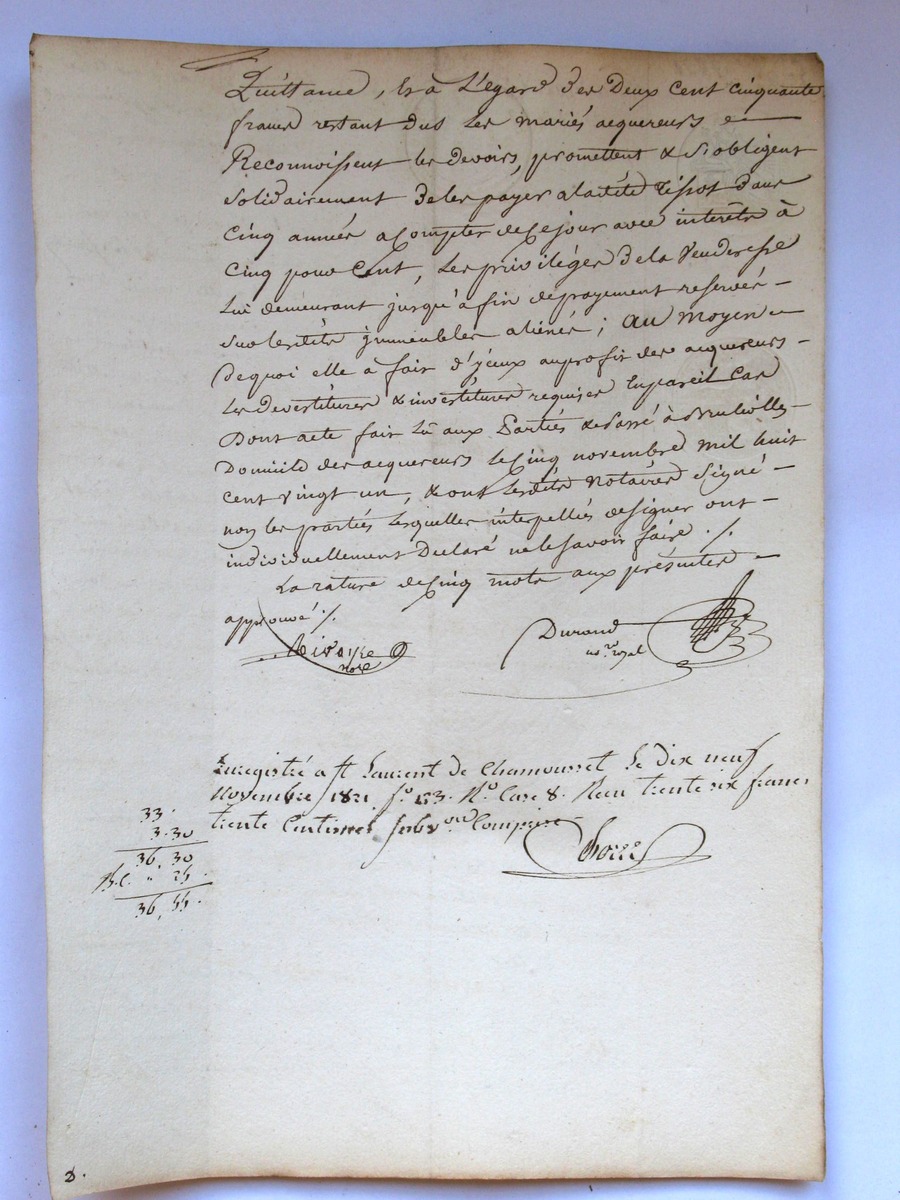 Quittance, & à L'egard des Deux cent cinquante
francs restant dus les mariés acquereurs
Reconnoissent les devoirs, promettent & s'obligent
solidairement de les payer a ladite Tissot dans
cinq années a Compter de ce jour avec interêts à
cinq pour Cent, les privilèges de la Venderesse
lui demeurant jusqu'à fin de payement reservés
sur lesdits immeubles aliénés ; au moyen
de quoi elle à fait d'yceux au profit des acquereurs
les devestitures & investitures requises en pareil Cas
Dont acte fait lû aux Parties & Passé à Brullioles
Domicile des acquereurs le Cinq novembre mil huit
cent vingt un, & ont lesdits Notaires signé
non les parties lesquelles interpellés de signer ont
individuellement Declaré ne le savoir faire ./.
La rature de Cinq mots aux présentes
approuvé ./.
Durand
no.re royal
Enregistré a st Laurent de Chamousset le dix neuf
Novembre 1821 fo 173. No. Case 8. Reçu trente six francs
trente Centimes subv.on Comprise
33.
3.30
36,30
25.
36,55.
2.